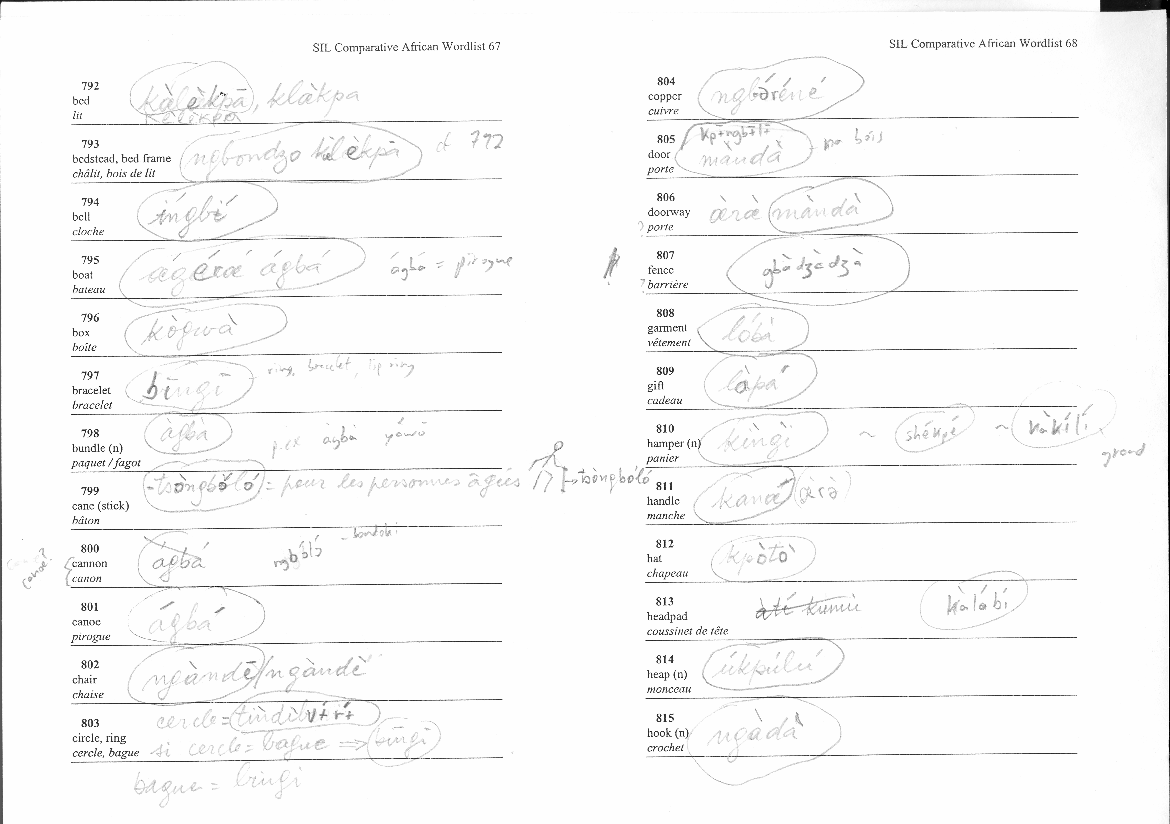 SIL Comparative African Wordlist 67
792
bed
lit
kàlèkpā, klàkpa
kèlèkpā
793
bedstead, bed frame
châlit, bois de lit
ngbondzo kàlèkpā cf 792
794
bell
cloche
íngbí
795
boat
bateau
ágbá ágbá = pirogue
796
box
boîte
kògwà
797
bracelet
bracelet
bīngī ring, bracelet, lip ring
798
bundle (n)
paquet / fagot
àgbà p.ex àgbà
799
cane (stick)
bâton
-tsòngbóló = pour les personnes âgées tsòngbóló
800
cannon
canon
ágbá
canoe?
801
canoe
pirogue
ágbá
802
chair
chaise
ngàndē/ngàndè
803
circle, ring
cercle, bague
cercle =
si cercle = bague => bīngī
bague = bīngi
SIL Comparative African Wordlist 68
804
copper
cuivre
805
door
porte
kpɨngbɨlɨ
màndà
806
doorway
? porte
àrà màndà
807
fence
? barrière
gbàdzàdzà
808
garment
vêtement
lóbà
809
gift
cadeau
làpá
810
hamper (n)
panier
kìngì ~ shékpé ~ kàkílí
grand
811
handle
manche
812
hat
chapeau
kpòtò
813
headpad
coussinet de tête
àtí kumù kàlábí
814
heap (n)
monceau
úkpúlú
815
hook (n)
crochet
ngàdà